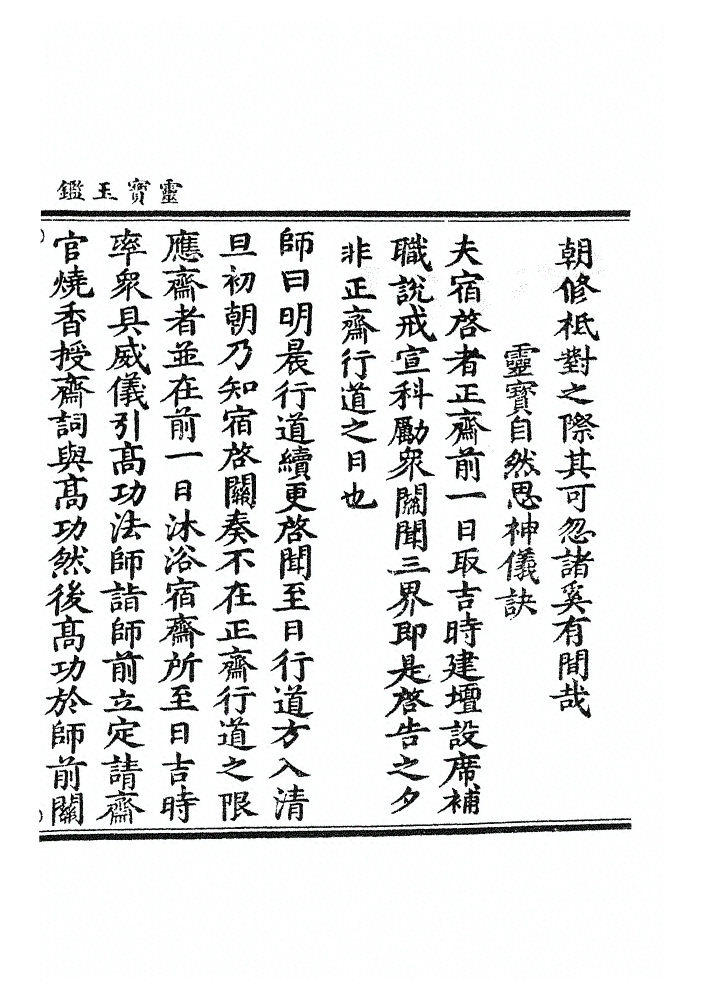 靈寶玉鑑
朝修祗對之際其可忽諸奚有間哉
靈寶自然思神儀訣
夫宿啓者正齋前一日取吉時建壇設席補
職說戒宣科勵衆關聞三界即是啓告之夕
非正齋行道之日也
師曰明晨行道續更啓聞至日行道方入清
旦初朝乃知宿啓關奏不在正齋行道之限
應齋者並在前一日沐浴宿齋所至日吉時
率衆具威儀引高功法師詣師前立定請齋
官燒香授齋詞與高功然後高功於師前關